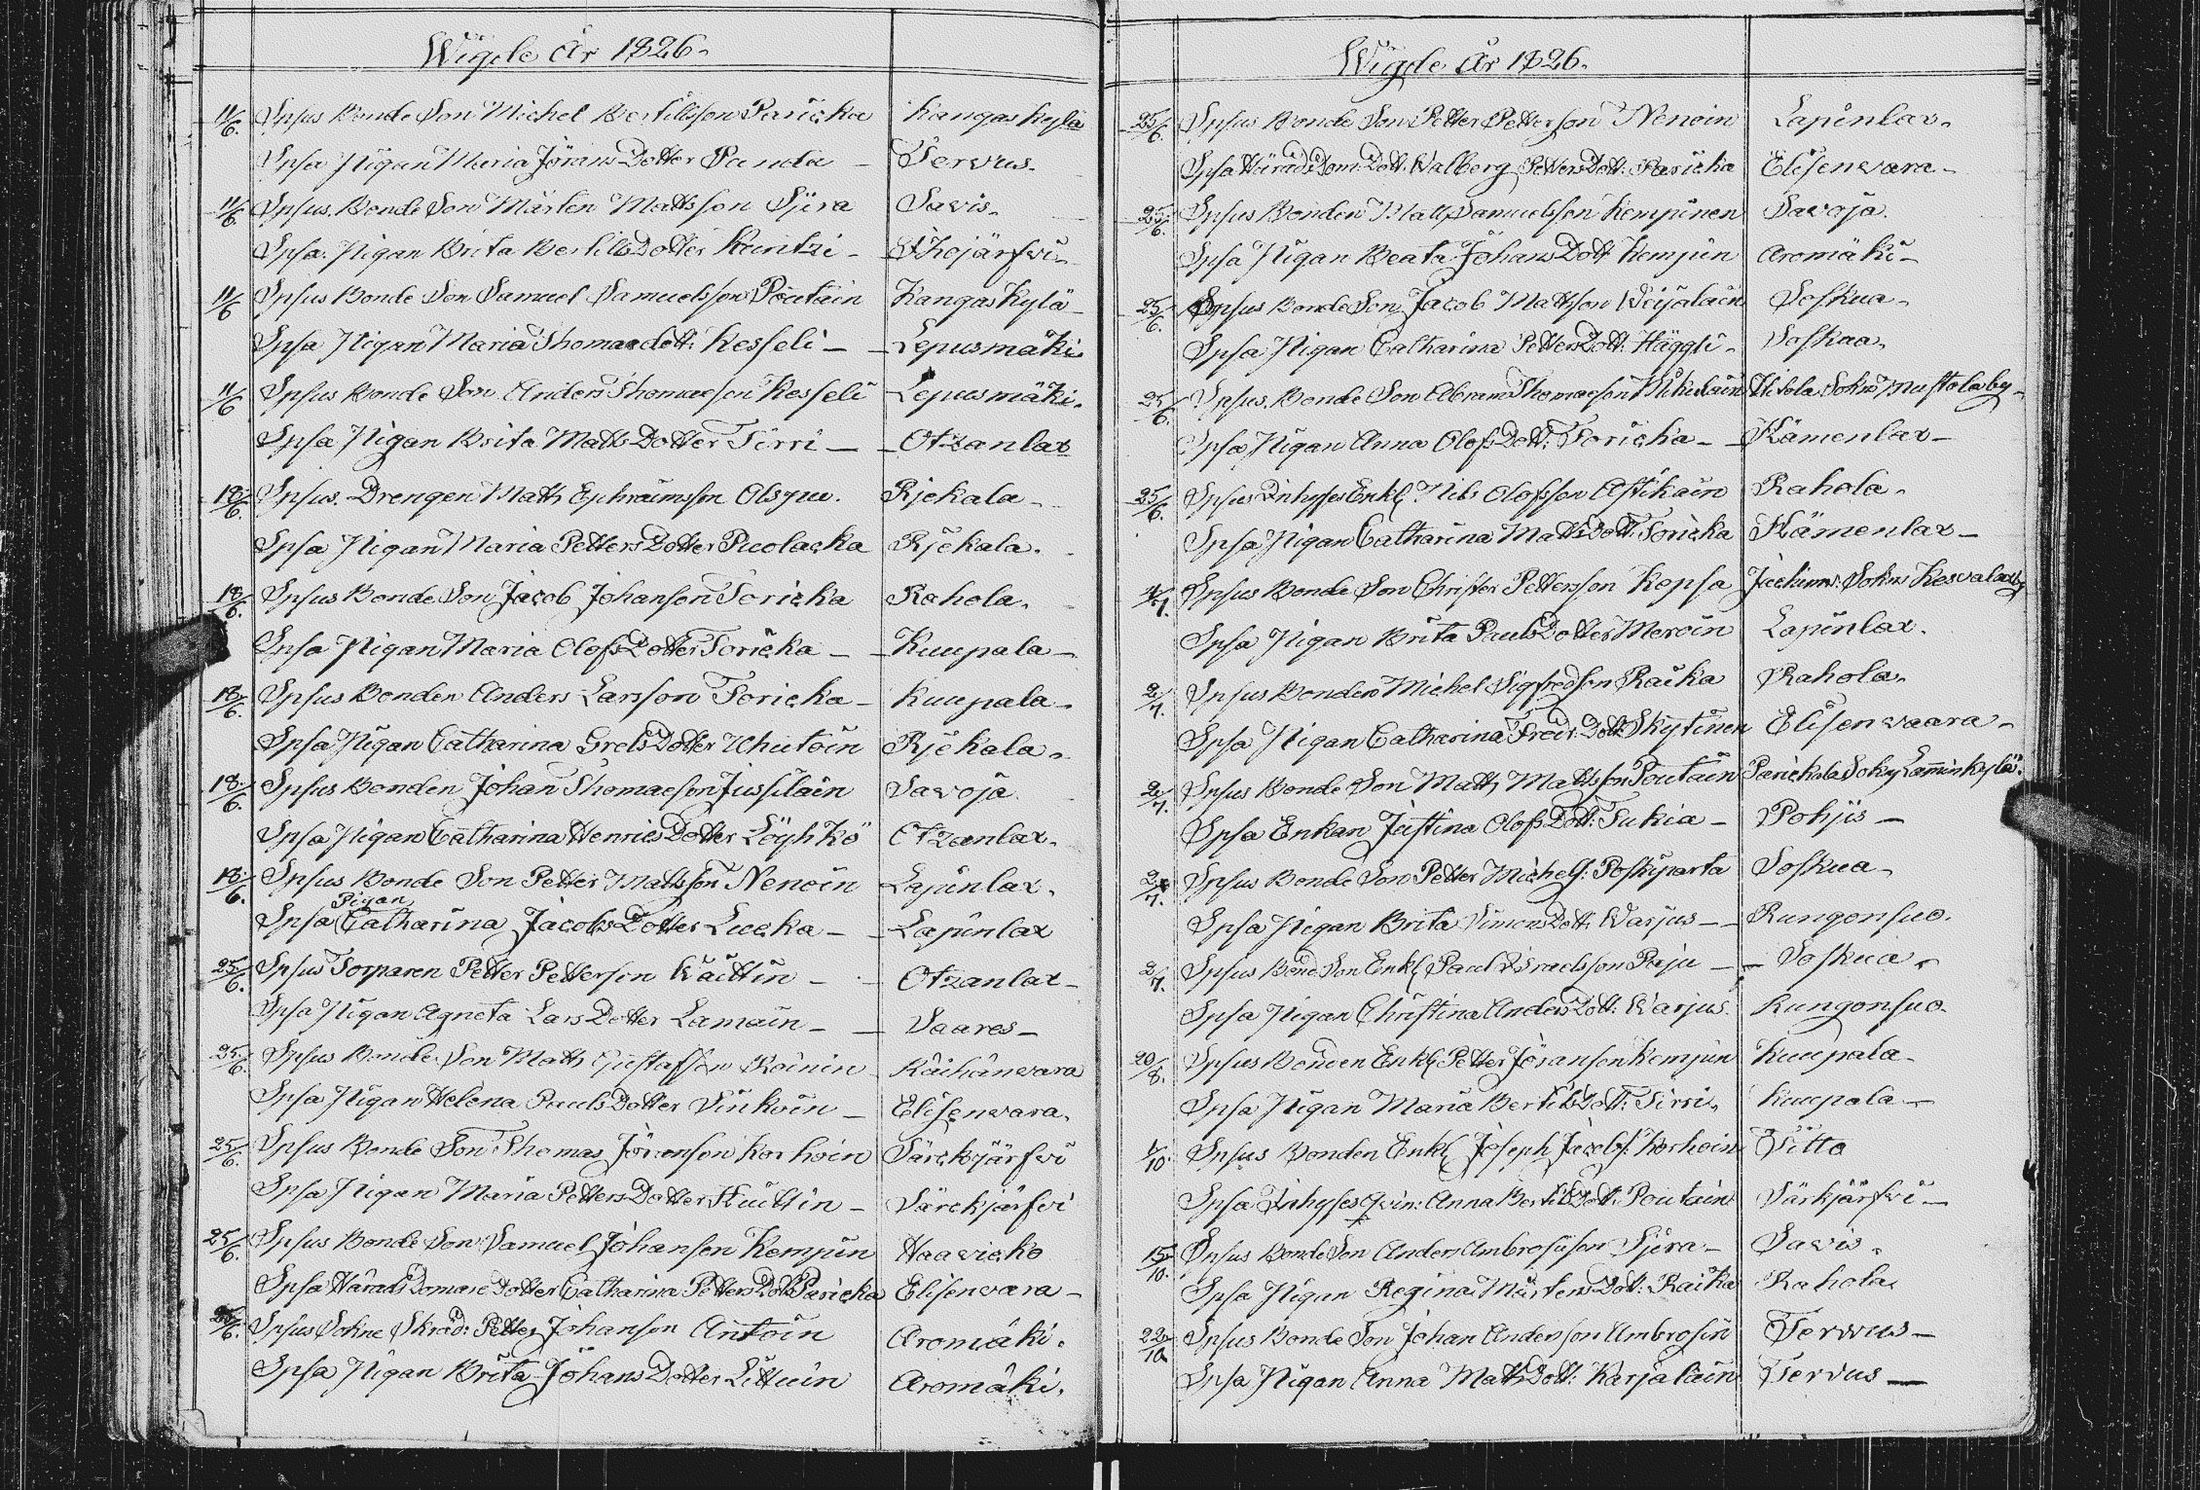 Wigde År 1826.
11/6. Spsus Bonde Son Michel Bertillsson Paricka Kangaskylä
Spsa Pigan Maria Jörans Dotter Panda — Tervus.
11/6 Spsus. Bonde Son Mårten Mattsson Sjera Savis.
Spsa. Pigan Brita Bertils Dotter Kuntzi — Ihojärfvi
11/6 Spsus Bonde Son Samuel Samuelsson Poutain Kangaskylä
Spsa Pigan Maria Thomaedott: Kesseli — Lepusmäki
11/6 Spsus Bonde Son Anders Thomaeson Kesseli Lepusmäki.
Spsa Pigan Brita Matts Dotter Tirri — Otzanlax
18/6. Spsus. Drengen Matts Ephraimsson Rjekala
Spsa Pigan Maria Petters Dotter Picolacka Rjekala.
18/6. Spsus Bonde Son Jacob Johanson Toricka Rahola.
Spsa Pigan Maria Olofs Dotter Toricka — Kuupala
18/6. Spsus Bonden Anders Larsson Toricka — Kuupala
Spsa Pigan Catharina Grels Dotter Rjekala.
18/6. Spsus Bonden Johan Thomaeson Jussilain Savoja
Spsa Pigan Catharina Henrics Dotter Löyhkö Otzanlax.
18/6. Spsus Bonde Son Petter Mattsson Nenoin Lapinlax.
Spsa Pigan Catharina Jacobs Dotter Lucka — Lapinlax
25/6. Spsus Torparen Petter Petterson Wäittin — Otzanlax
Spsa Pigan Agneta Lars Dotter Lamain — Saares
25/6. Spsus Bonde Son Matts Gustafsson Roinin Räihänvara
Spsa Pigan Helena Pauls Dotter Sinkoin — Elisenvara.
25/6. Spsus Bonde Son Thomas Jöranson Korhoin Särckjärfvi
Spsa Pigan Maria Petters Dotter — Särckjärfvi
25/6. Spsus Bonde Son Samuel Johanson Kempin Haavicko
Spsa Härads Domare Dotter Catharina Petters Dott Paricka Elisenvara
25/6. Spsus Sokne Skräd: Petter Johanson Antoin Aromäki.
Spsa Pigan Brita Johans Dotter Littuin Aromäki.
Wigde År 1826.
25/6. Spsus Bonde Son Petter Petterson Nenoin Lapinlax.
Spsa Härads Dom: Dott. Walberg Petters Dott: Paricka Elisenvara
25/6. Spsus Bonden Matts Samuelsson Kempinen Savoja.
Spsa Pigan Beata Johans Dott Kempin Aromäki
25/6. Spsus Bonde Son Jacob Mattsson Weijalain Soskua
Spsa Pigan Catharina Petters Dott: Häggli Soskua.
25/6. Spsus. Bonde Son Abram Thomaeson Mikulain Hitola Sokn Mustola by
Spsa Pigan Anna Olofs Dott: Toricka — Hämenlax
25/6. Spsus Inhyses Enkl. Nils Olofsson Astikain Rahola.
Spsa Pigan Catharina Matts Dott: Toricka Hämenlax
Spsus Bonde Son Christer Pettersson Kopsa Jackims: Sokn
Spsa Pigan Brita Pauls Dotter Meroin Lapinlax.
2/7. Spsus Bonden Michel Sigfredson Raika Rahola.
Spsa Pigan Catharina Fredr: Dott: Skytinen Elisenvaara
2/7. Spsus Bonde Son Matts Mattsson Poutain Parickala Sokn
Spsa Enkan Justina Olofs Dott: Tukia — Pohjis
2/7. Spsus Bonde Son Petter Michels: Poskiparta Soskua
Spsa Pigan Brita Simons Dott: Warjus — Rungonsuo.
2/7. Spsus Bond Son Enkl Paul Israelsson Paju — Soskua
Spsa Pigan Christina Anders Dott: Warjus. Rungonsuo.
20/8. Spsus Bonden Enkl. Petter Jöranson Kempin Kuupala
Spsa Pigan Maria Bertils Dott: Tirri. Kuupala
1/10. Spsus Bonden Enkl Joseph Jacobs: Korhoin Ditto
Spsa Inhyses Qvin: Anna Bertils Dott: Poutain Särkjärfvi
15/10. Spsus Bonde Son Anders Ambrosiison Sjera Savis.
Spsa Pigan Regina Mårtens Dott: Raika Rahola
22/10 Spsus Bonde Son Johan Andersson Ambrosin Tervus
Spsa Pigan Anna Matts Dott: Karjalain Tervus